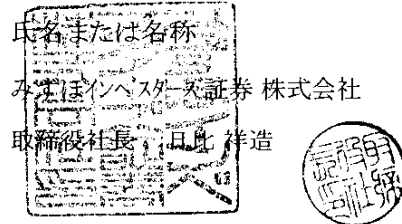 氏名または名称
みずほインベスターズ証券 株式会社
取締役社長 日比 祥造